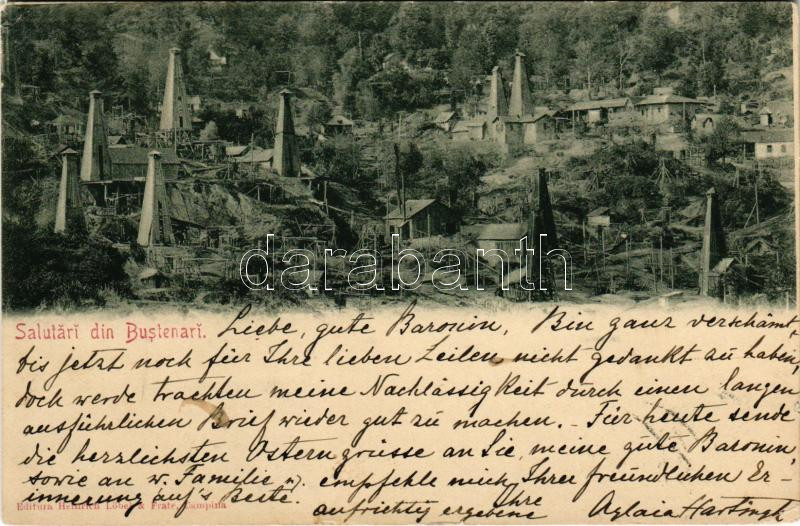 darabanth
Salutări din Buştenarĭ. Liebe, gute Baronin, Bin ganz verschämt,
bis jetzt noch für Ihre lieben Zeilen nicht gedankt zu haben,
doch werde trachten meine Nachlässigkeit durch einen langen
ausführlichen Brief wieder gut zu machen. – Für heute sende
die herzlichsten Ostergrüsse an Sie, meine gute Baronin,
sowie an w. Familie, empfehle mich Ihrer freundlichen Er-
innerung auf's Beste. aufrichtig ergebene Ihre Aglaia
Editura Heinrich Lobel & Frate, Campina